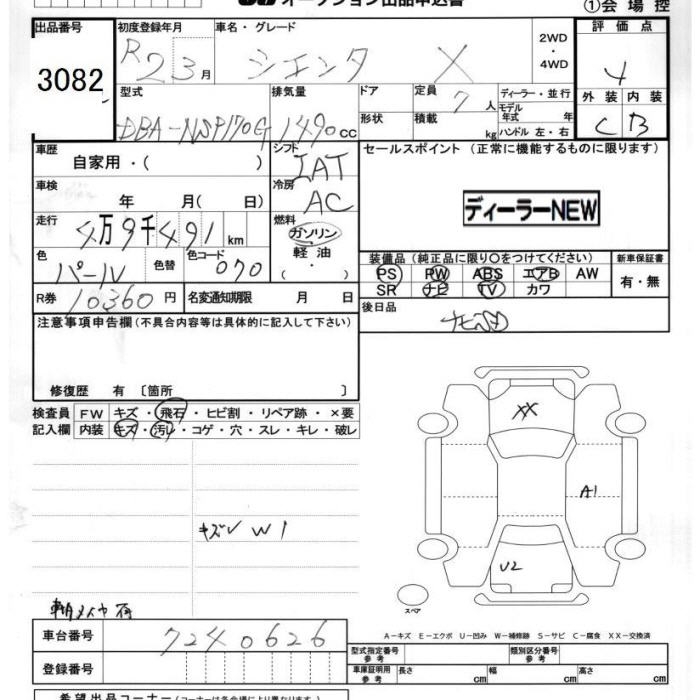 オークション出品申込書
①会場控
出品番号
3082
初度登録年月
R2 3月
車名・グレード
シエンタ X
2WD・4WD
評価点
4
外装 内装
C B
型式
DBA-NSP170G
排気量
1490cc
ドア
形状
定員 7人
積載 kg
ディーラー・並行
モデル年式 年
ハンドル 左・右
車歴
自家用・( )
シフト
IAT
セールスポイント (正常に機能するものに限ります)
ディーラーNEW
車検
年 月( 日)
冷房
AC
走行
4万9千491km
燃料
ガソリン
軽油
( ・ )
色
パール
色替
色コード
070
装備品 (純正品に限り○をつけてください)
PS PW ABS エアB AW
SR ナビ TV カワ
新車保証書
有・無
R券
10360円
名変通知期限 月 日
後日品
注意事項申告欄 (不具合内容等は具体的に記入して下さい)
修復歴 有 〔箇所 〕
検査員記入欄
FW キズ・飛石・ヒビ割・リペア跡・×要
内装 キズ・汚レ・コゲ・穴・スレ・キレ・破レ
XX
A1
U2
キズレ W1
スペア
A-キズ E-エクボ U-凹み W-補修跡 S-サビ C-腐食 XX-交換済
車台番号
7240626
登録番号
型式指定番号 参考
類別区分番号 参考
車庫証明用 参考
長さ cm 幅 cm 高さ cm
希望出品コーナー (コーナーは各会場により異なります)